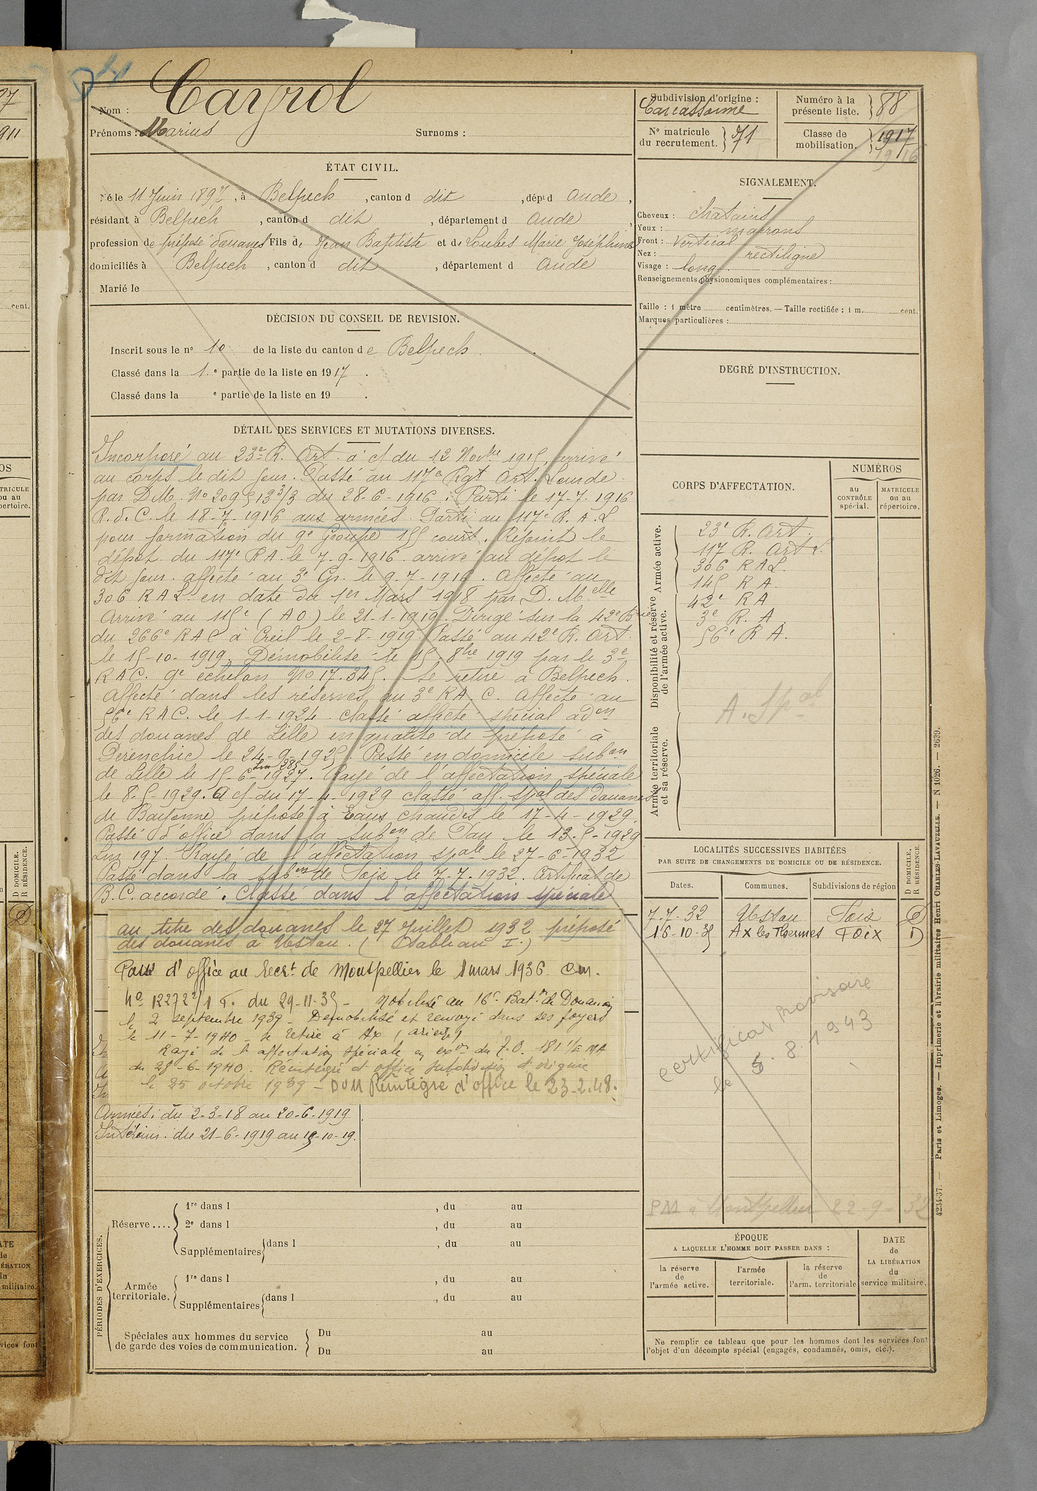 Nom : Cayrol
Prénoms : Marius Surnoms :
ÉTAT CIVIL.
Né le 11 Juin 1897, à Belpech, canton d dit, dép^t d Aude,
résidant à Belpech, canton d dit, département d Aude
profession de préposé douanes Fils de Jean Baptiste et de Loubes Marie Joséphine
domiciliés à Belpech, canton d dit, département d Aude
Marié le
DÉCISION DU CONSEIL DE REVISION.
Inscrit sous le n° 10 de la liste du canton de Belpech.
Classé dans la 1.e partie de la liste en 1917.
Classé dans la e partie de la liste en 19 .
DÉTAIL DES SERVICES ET MUTATIONS DIVERSES.
Incorporé au 23e R. Art. à c/ du 12 Novbre 1915, arrivé
au corps le dit jour. Passé au 117e Rgt Art. Lourde
par D.M. No 20951 3/3 du 28-6-1916. Parti le 17.7.1916
R.d.C. le 18-7-1916 aux armées. Parti au 117e R.A.L
pour formation du 9e Groupe 155 court. Rejoint le
dépôt du 117e RA le 7.9.1916 arrivé au dépôt le
dit jour. affecté au 3e Gr. le 9.7.1916. Affecté au
306 RAL en date du 1er Mars 1918 par D. Melle
Arrivé au 15e (AO) le 21-1-1919. Dirigé sur la 42e Bie
du 266e RAC à Creil le 2-8-1919 Passé au 42e R. Art.
le 15-10-1919. Démobilisé le 15 8bre 1919 par le 3e
RAC. 9e échelon No 17.345. Se retire à Belpech.
Affecté dans les réserves au 3e RA C. Affecté au
56e RAC. le 1-1-1924. Classé affecté spécial adon
des douanes de Lille en qualité de préposé à
le 24-9-1925. Passé en domicile subon
de Lille le 15-6-1927. Rayé de l'affectation spéciale
le 8-5-1929. A c/ du 17-4-1929 classé aff. spal des douanes
de Bayonne, préposé à Eaux chaudes le 17-4-1929.
Passé d'office dans la subon de Pau le 13-5-1929
197. Rayé de l'affectation spale le 27-6-1932
Passé dans la subon de Foix le 7.7.1932. Certificat de
B.C. accordé. Classé dans l'affectation spéciale
au titre des douanes le 27 juillet 1932 préposé
des douanes à Ustou. (tableau I.)
Passé d'office au Recrt de Montpellier le 1 mars 1936. cm.
No 12272/1 R. du 29-11-35 - Mobilisé au 16e Baton de Douaniers
le 2 septembre 1939 - Démobilisé et renvoyé dans ses foyers
le 11-7-1940 - se retire à Ax (Ariège)
Rayé de l'affectation spéciale en exon du F.O. 181 1/EMA
du 25-6-1940. Réintégré d'office subdivision d'origine
le 25 octobre 1939 - DOM Réintégré d'office le 23.2.48.
Armées : du 2-3-18 au 20-6-1919
Intérieur : du 21-6-1919 au 15-10-19.
PÉRIODES D'EXERCICES.
Réserve.... 1re dans l , du au
2e dans l , du au
Supplémentaires dans l , du au
Armée territoriale. 1re dans l , du au
Supplémentaires dans l , du au
Spéciales aux hommes du service de garde des voies de communication. Du au
Du au
Subdivision d'origine : Carcassonne
N° matricule du recrutement. 71
Numéro à la présente liste. 88
Classe de mobilisation. 1917
1916
SIGNALEMENT.
Cheveux : chatains
Yeux : marrons
Front : vertical
Nez : rectiligne
Visage : long
Renseignements physionomiques complémentaires :
Taille : 1 mètre centimètres. — Taille rectifiée : 1 m. cent.
Marques particulières :
DEGRÉ D'INSTRUCTION.
CORPS D'AFFECTATION.
NUMÉROS
au CONTRÔLE spécial.
MATRICULE ou au répertoire.
Armée active.
Disponibilité et réserve de l'armée active.
Armée territoriale et sa réserve.
23e R. Art.
117 R. Art L
306 RAL
145 RA.
42e RA
3e R.A.
56e RA.
A. Spal
LOCALITÉS SUCCESSIVES HABITÉES
PAR SUITE DE CHANGEMENTS DE DOMICILE OU DE RÉSIDENCE.
Dates. Communes. Subdivisions de région D DOMICILE. R RÉSIDENCE.
7.7.32 Ustou Foix D
16-10-35 Ax les Thermes Foix D
certificat provisoire
le 5.8.1943
PM à Montpellier 22-9-32
ÉPOQUE
A LAQUELLE L'HOMME DOIT PASSER DANS :
la réserve de l'armée active.
l'armée territoriale.
la réserve de l'arm. territoriale
DATE de LA LIBÉRATION du service militaire.
Ne remplir ce tableau que pour les hommes dont les services font
l'objet d'un décompte spécial (engagés, condamnés, omis, etc.).
4234-37. — Paris et Limoges. — Imprimerie et librairie militaires Henri CHARLES-LAVAUZELLE. — N 1026. — 2639.